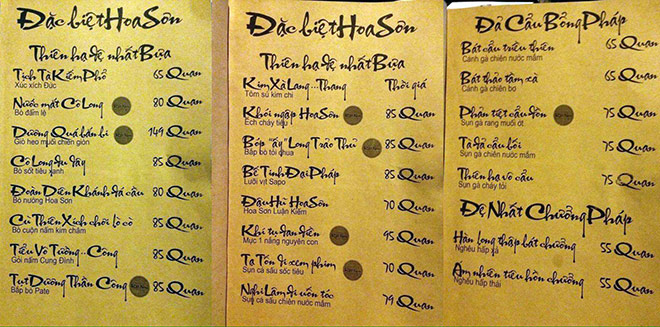 Đặc biệt Hoa Sơn
Thiên hạ đệ nhất Bựa
Tịch Tà Kiếm Phổ 65 Quan
Xúc xích Đức
Nước mắt Cô Long 80 Quan
Bò đấm lệ
Dương Quá bắn bi 149 Quan
Giò heo muối chiên giòn
Cô Long đu dây 85 Quan
Bò sốt tiêu xanh
Đoàn Diên Khánh đá cầu 80 Quan
Bò nướng Hoa Sơn
Cu Thiên Xích chơi lò cò 85 Quan
Bò cuộn nấm kim châm
Tiểu Vô Tướng...Công 85 Quan
Gỏi nấm Cung Đình
Tụt Dương Thần Công 85 Quan
Bắp bò Pate
Đặc biệt Hoa Sơn
Thiên hạ đệ nhất Bựa
Kim Xà Lang...Thang Thời giá
Tôm sú kim chi
Khói ngập Hoa Sơn 85 Quan
Ếch cháy tiêu
Bóp "ấy" Long Trảo Thủ 85 Quan
Bắp bò tói chua
Bế Tinh Đại Pháp 85 Quan
Lưỡi vịt Sapo
Đậu Hũ Hoa Sơn 70 Quan
Hoa Sơn Luận Kiếm
Khi tự đan điền 95 Quan
Mực 1 nắng nguyên con
Tạ Tốn đi xem phim 70 Quan
Sụn cá sấu sốc tiêu
Nghi Lâm đi uốn tóc 79 Quan
Sụn cá sấu chiên nước mắm
Đả Cẩu Bổng Pháp
Bát cẩu triều thiên 65 Quan
Cánh gà chiên nước mắm
Bát thảo tầm xà 65 Quan
Cánh gà chiên bơ
Phản tiệt cẩu đồn 75 Quan
Sụn gà rang muối ớt
Tà đả cẩu bối 75 Quan
Sụn gà chiên nước mắm
Thiên hạ vô cẩu 75 Quan
Sụn gà cháy tỏi
Đệ Nhất Chưởng Pháp
Hàn long thập bát chưởng 55 Quan
Nghêu hấp xả
Ám nhiên tiêu hồn chưởng 55 Quan
Nghêu hấp thái